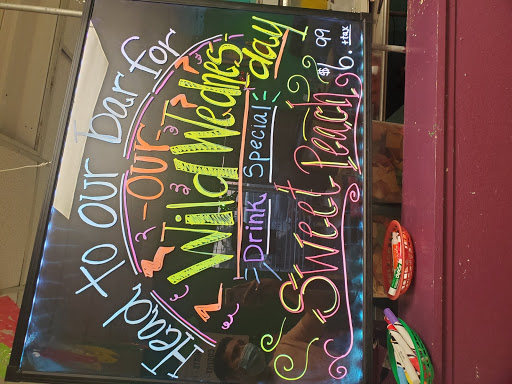 Head to our bar for
-our-
Wild Wednes-
day
Drink Special
Sweet Peach
$6.99
+tax